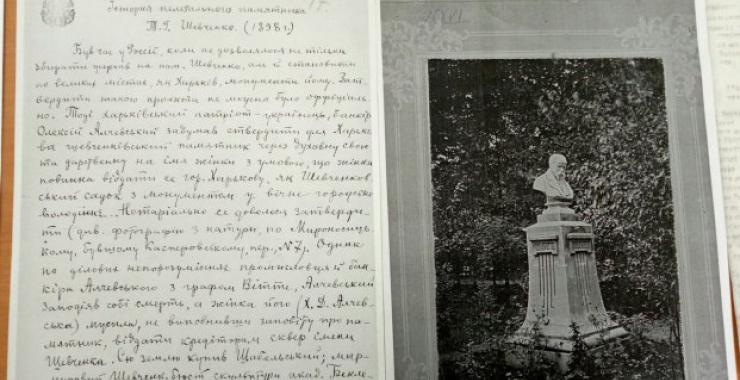 Історія нелегального памятника
Т. Г. Шевченко. (1898 г.)
Був час у Россіі, коли не дозволялося не тільки
збірати фундаів на пам. Шевченко, алі й становити
по великих містах, як Харьків, монументи йому. Зат-
вердити такого проэкта не можна було оффіціаль-
но. Тоді харьківський патріот-украінець, банкір
Олексій Алчевський задумав ствердити для Харько-
ва шевченківський памятник через духовну свою
та дарственну на імя жінки з умовою, що жінка
повинна віддати се гор. Харькову, як Шевченков-
ський садок з монументом у вічне городське
володіннє. Нотаріально се довелося затверди-
ти (див. фотографію з натури, по Мироносиць-
кому, бувшому Касперовському, пер., №7). Однак
по ділових непорозуміннях промисловця й бан-
кіра Алчевського з графом Вітте, Алчевський
заподіяв собі смерть, а жінка його (Х. Д. Алчев-
ська) мусила, не виповнивши заповіту про па-
мятник, віддати кредіторам сквер імени
Шевченка. Сю землю купив Шабельський;
Шевченк. бюст скульптури акад. Бекле-